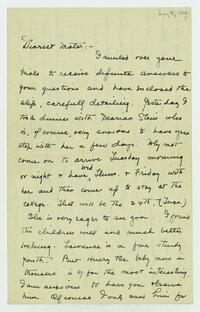 Dearest Mater:-
I smiled over your
trials to receive definite answers to
your questions and have enclosed the
slip, carefully detailing. Yesterday I
took dinner with Marian Stein who
is, of course, very anxious to have you
stop with her a few days. Why not
come on to arrive Tuesday morning
or night & have Wed., Thurs. & Friday with
her and then come up to stay at the
college. That will be the 24th. (Tues.)
She is very eager to see you. I found
the children well and much better
looking. Lawrence is a fine sturdy
youth. But Henry the baby now in
trousers is by far the most interesting.
I am anxious to have you observe
him. Of course I only saw him for